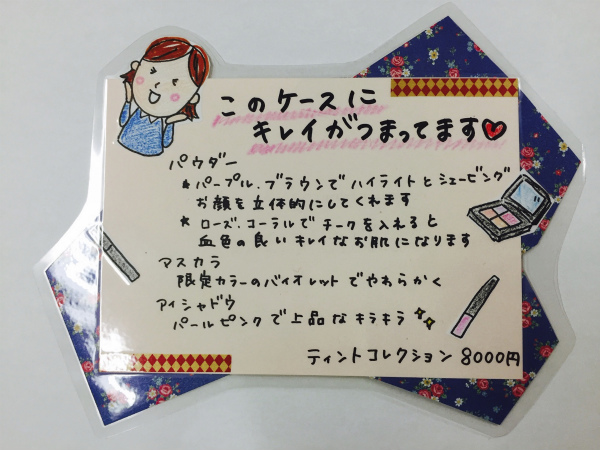 このケースに
キレイがつまってます
パウダー
★パープル.ブラウンでハイライトとシェービング
お顔を立体的にしてくれます
★ローズ.コーラルでチークを入れると
血色の良いキレイなお肌になります
マスカラ
限定カラーのバイオレットでやわらかく
アイシャドウ
パールピンクで上品なキラキラ
ティントコレクション 8000円